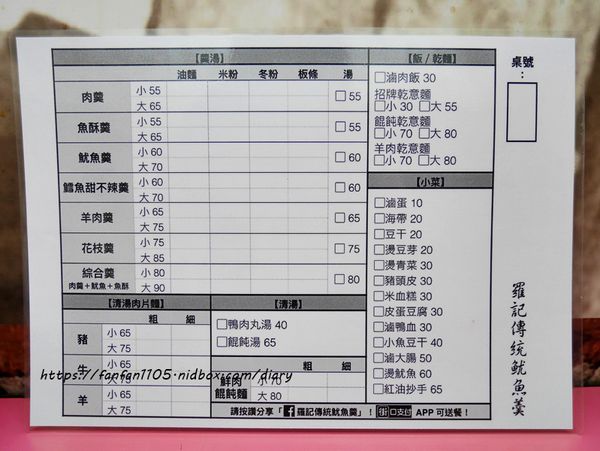 【羹湯】
油麵 米粉 冬粉 板條 湯
肉羹 小 55 大 65 □55
魚酥羹 小 55 大 65 □55
魷魚羹 小 60 大 70 □60
鱈魚甜不辣羹 小 60 大 70 □60
羊肉羹 小 65 大 75 □65
花枝羹 小 75 大 85 □75
綜合羹 小 80 大 90 □80
肉羹+魷魚+魚酥
【清湯肉片麵】
粗 細
豬 小 65 大 75
牛 小 65 大 75
羊 小 65 大 75
【清湯】
□鴨肉丸湯 40
□餛飩湯 65
粗 細
鮮肉餛飩麵 小 70 大 80
【飯 / 乾麵】
□滷肉飯 30
招牌乾意麵
□小 30 □大 55
餛飩乾意麵
□小 70 □大 80
羊肉乾意麵
□小 70 □大 80
【小菜】
□滷蛋 10
□海帶 20
□豆干 20
□燙豆芽 20
□燙青菜 30
□豬頭皮 30
□米血糕 30
□皮蛋豆腐 30
□滷鴨血 30
□小魚豆干 40
□滷大腸 50
□燙魷魚 60
□紅油抄手 65
請按讚分享「f羅記傳統魷魚羹」! 街口支付 APP 可送餐!
桌號:
羅記傳統魷魚羹
https://fanfan1105.nidbox.com/diary